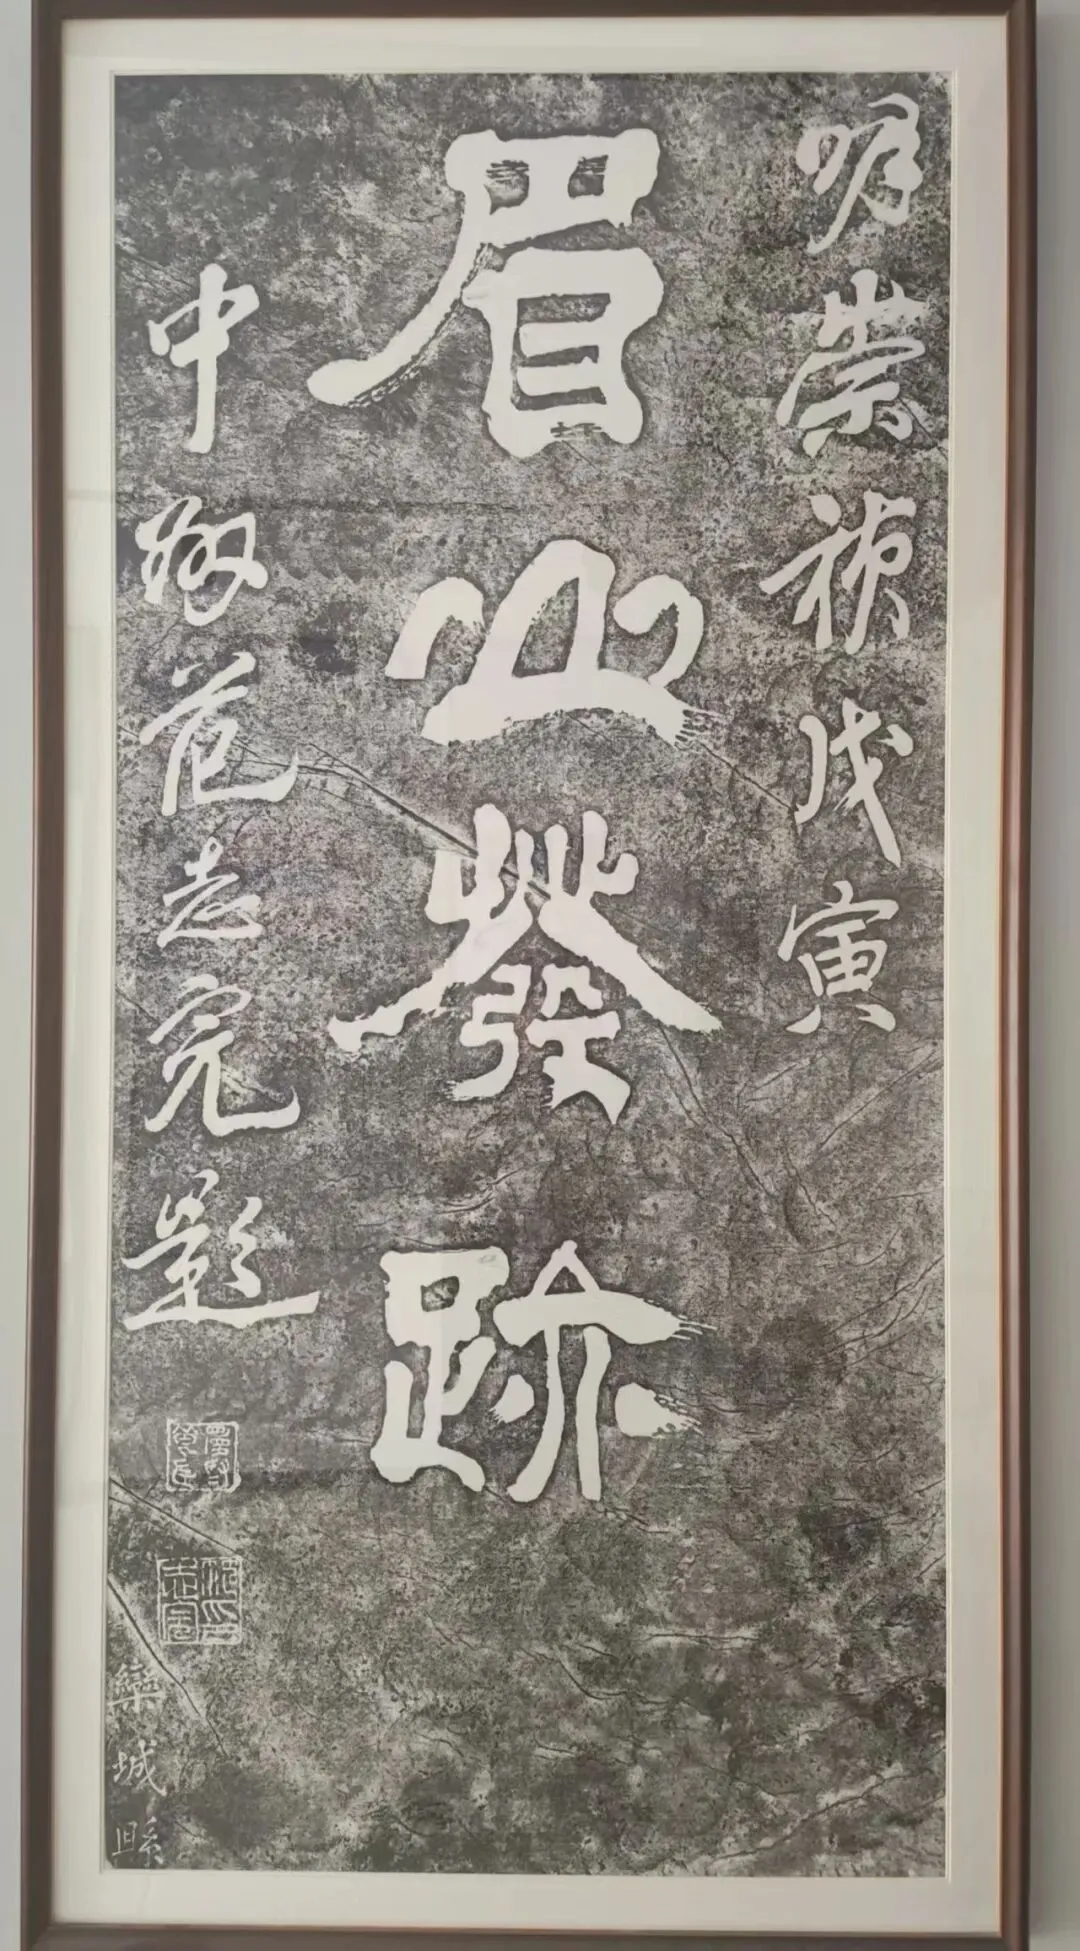 明崇禎戊寅
眉山發跡
中州范志完題
欒城縣